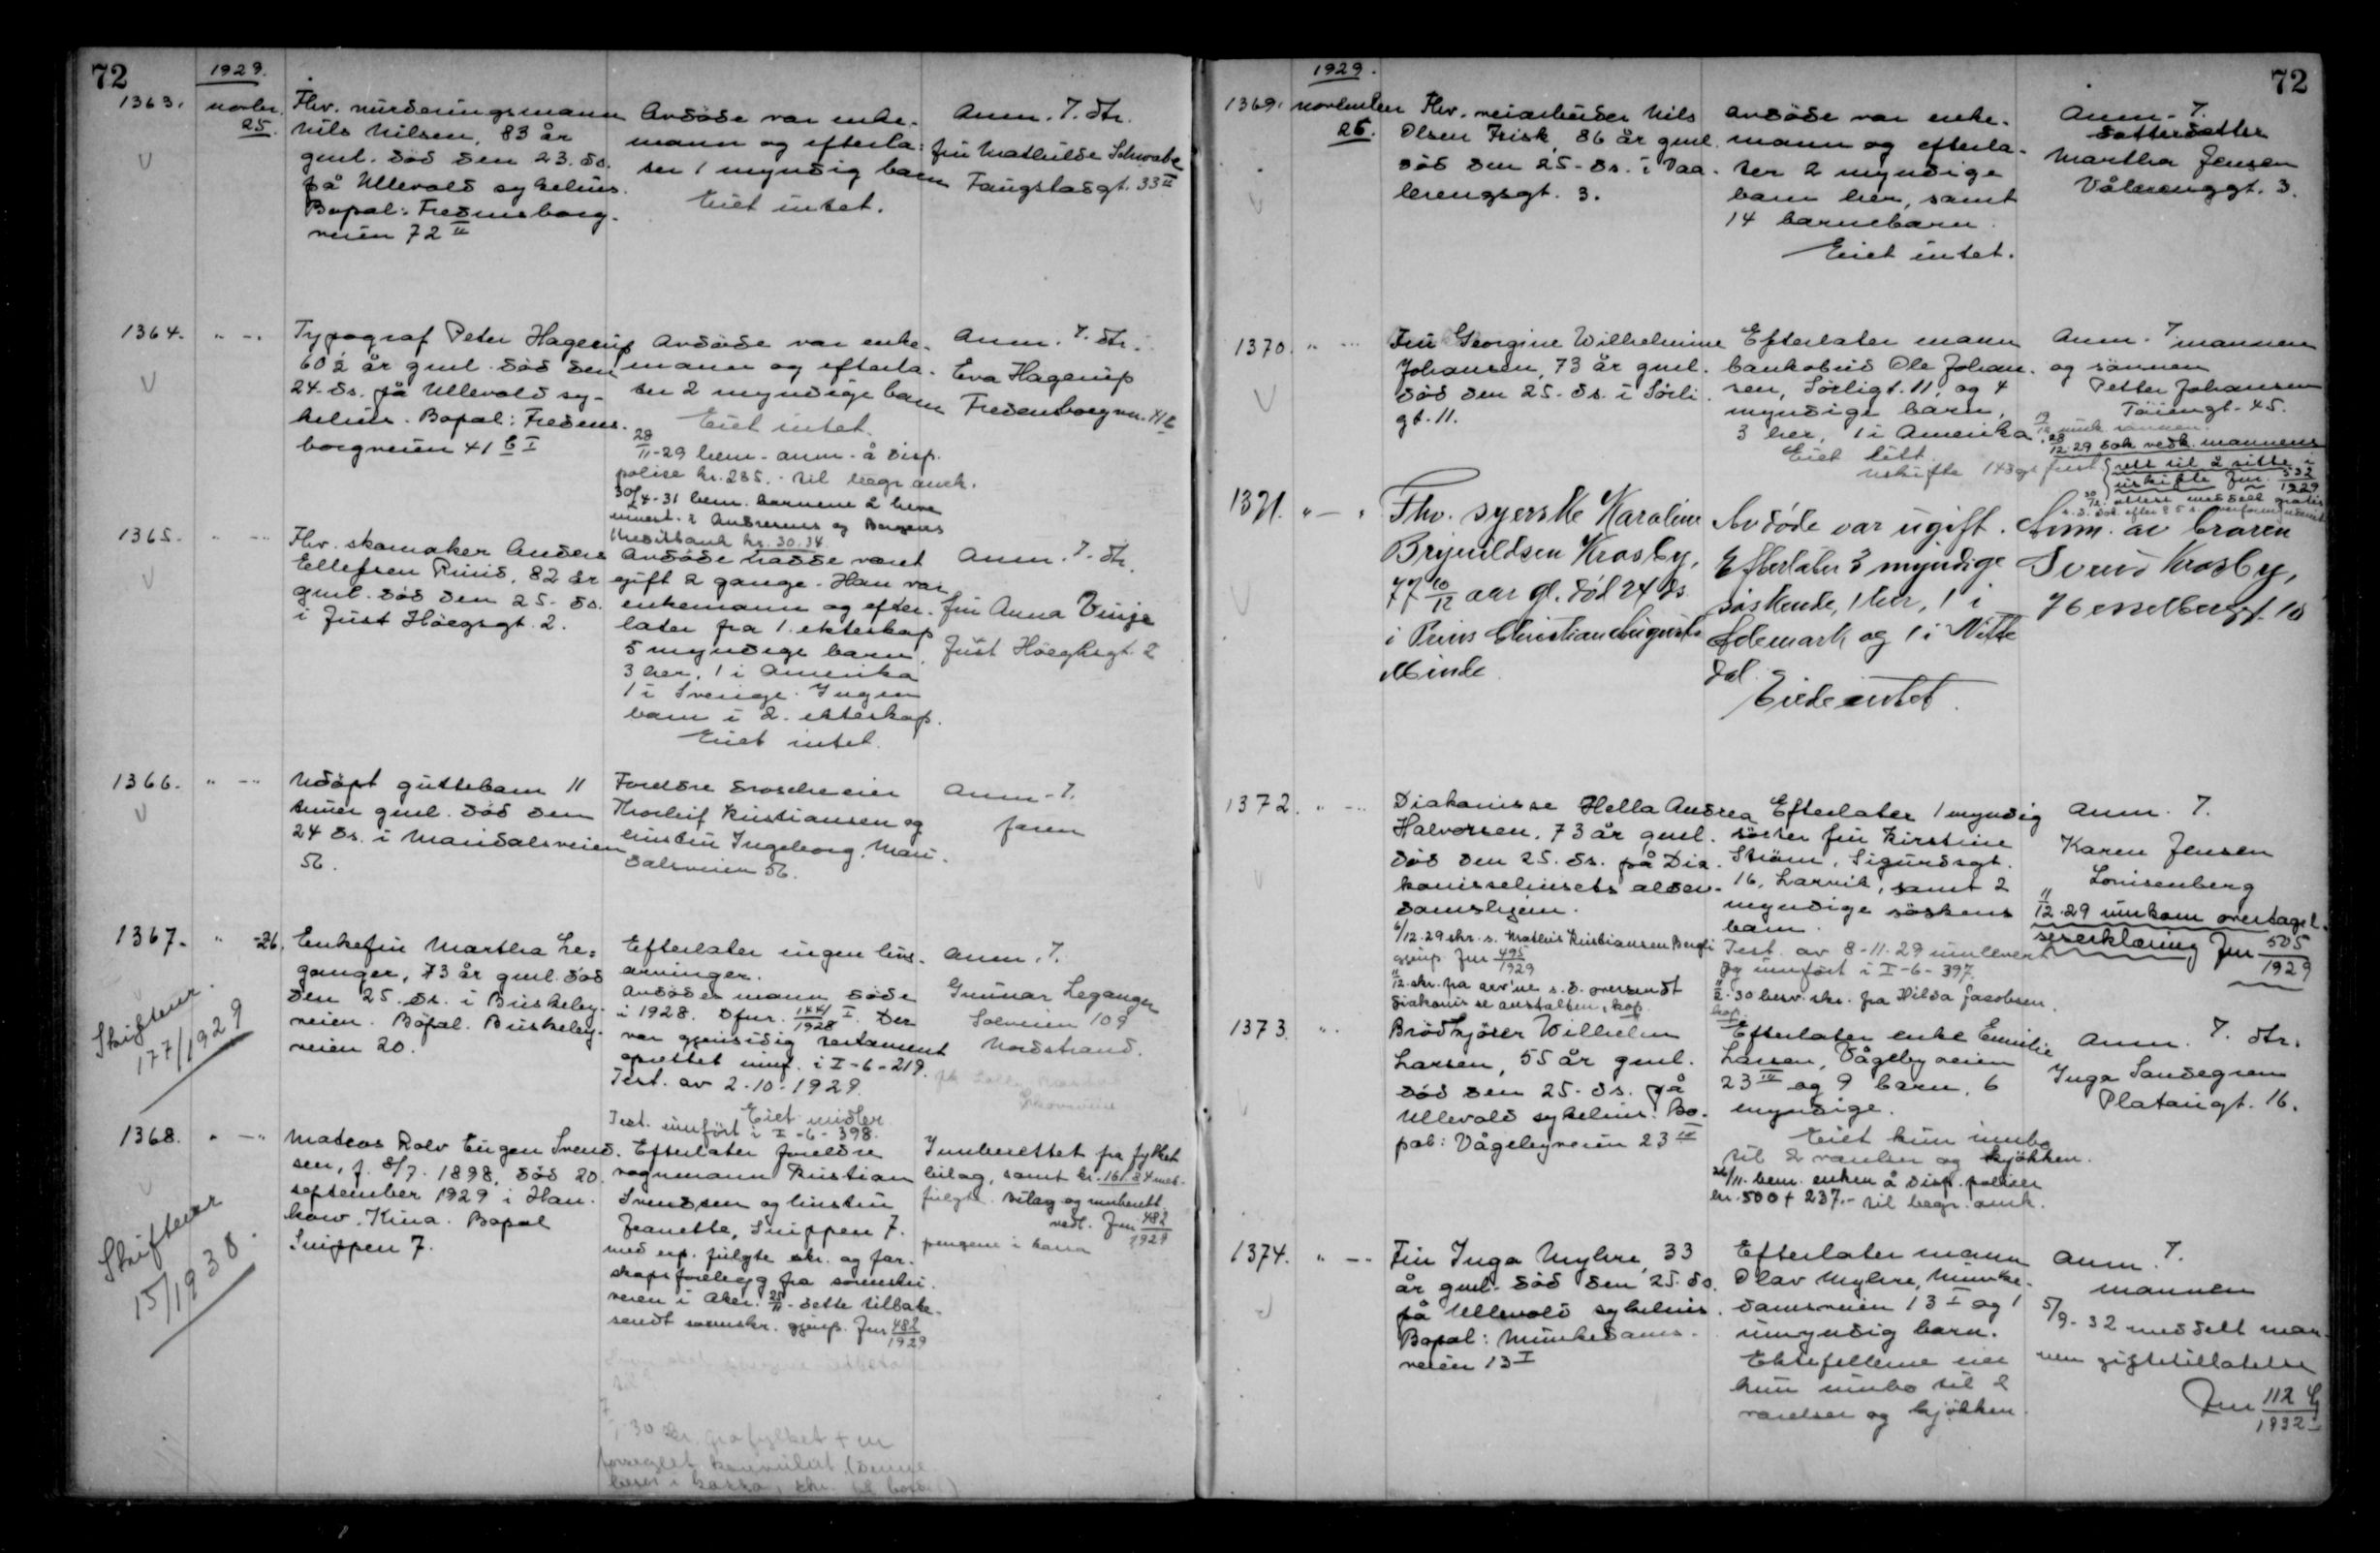 72
1929.
1363.
novbr.
25.
Fhv. murderingsmann
Nils Nilsen, 83 år
gml. död den 23. ds.
på Ullevold sykehus.
Bopæl: Fredensborg-
veien 72 II
Avdöde var enke-
mann og efterla-
ter 1 myndig barn
Eiet intet.
Anm. 7. dtr.
fru Mathilde Schwabe
Faugstadgt. 33 II
1364.
" - "
Typograf Peter Hagerup
60 1/2 år gml. död den
24. ds. på Ullevold sy-
kehus. Bopæl: Fredens-
borgveien 41 b I
Avdöde var enke-
mann og efterla-
ter 2 myndige barn
Eiet intet.
28/11-29 bem. anm. å disp.
polise kr. 285.- til begr. anch.
30/4-31 bem. barnene å heve
innest. i Andresens og Bergens
Kreditbank kr. 30.34.
Anm. 7. dtr.
Eva Hagerup
Fredensborgvn. 41 b
1365.
" - "
Fhv. skomaker Anders
Ellefsen Ruud, 82 år
gml. död den 25. ds.
i Just Höegsgt. 2.
Avdöde hadde været
gift 2 gange. Han var
enkemann og efter-
later fra 1. ekteskap
5 myndige barn,
3 her, 1 i Amerika
1 i Sverige. Ingen
barn i 2. ekteskap.
Eiet intet.
Anm. 7. dtr.
fru Anna Vinje
Just Höeghsgt. 2
1366.
" - "
Udöpt guttebarn 11
timer gml. död den
24 ds. i Maridalsveien
56.
Foreldre droscheeier
Thorleif Kristiansen og
hustru Ingeborg, Mari-
dalsveien 56.
Anm. 7.
faren
1367.
" - 26.
Skiftenr.
177/1929
Enkefru Martha Le-
ganger, 73 år gml. död
den 25. ds. i Buskeby-
veien. Bopæl. Buskeby-
veien 20.
Efterlater ingen livs-
arvinger.
Avdödes mann döde
i 1928. Dfnr. 144/1928 I. Der
var gjensidig testament
oprettet innf. i I-6-219.
Test. av 2-10-1929.
Eiet midler
Test. innfört i I-6-398.
Anm. 7.
Gunnar Leganger
Solveien 109
Nordstrand.
1368.
" - "
Skiftenr
15/1930.
Mateos Rolv Eugen Svend-
sen, f. 8/7. 1898, död 20.
september 1929 i Han-
kow, Kina. Bopæl
Snippen 7.
Efterlater foreldre
vognmann Kristian
Svendsen og hustru
Jeanette, Snippen 7.
med exp. fulgte skr. og far-
skapsforelegg fra sorenskri-
veren i Aker. 25/11 - dette tilbake-
sendt sorenskr. gjenp. Jnr 482/1929
30 skr. fra fylket + en
forseglet konvolut (denne
Innberettet fra fylket
bilag, samt kr. 161.84 med-
fulgte. Bilag og innberett.
vedl. Jnr 482/1929
pengene i kassa
72
1929.
1369.
november
26.
Fhv. veiarbeider Nils
Olsen Frisk, 86 år gml.
död den 25. ds. i Vaa-
lerengsgt. 3.
Avdöde var enke-
mann og efterla-
ter 2 myndige
barn her, samt
14 barnebarn.
Eiet intet.
Anm. 7.
datterdatter
Martha Jensen
Vålerenggt. 3.
1370.
" - "
Fru Georgine Wilhelmine
Johansen, 73 år gml.
död den 25. ds. i Sörli-
gt. 11.
Efterlater mann
bankobud Ole Johan-
sen, Sörligt. 11, og 4
myndige barn,
3 her, 1 i Amerika
Eiet litt
uskifte
Anm. 7. mannen
og sönnen
Petter Johansen
Töiengt. 45.
28/12-29 dok. vedk. mannens
rett til å sitte i
uskifte Jnr 532/1929
1371.
" - "
Fhv. syerske Karoline
Brynildsen Krosby,
77 10/12 aar gl. död 24 ds.
i Prins Christian Augusts
Minde.
Avdöde var ugift.
Efterlater 3 myndige
söskende, 1 her, 1 i
Ödemark og 1 i Nitte
dal.
Eiede intet.
Anm. av broren
Svend Krosby,
Hesselbergsgt. 10
1372.
" - "
Diakonisse Hella Andrea
Halvorsen, 73 år gml.
död den 25. ds. på Dia-
konissehusets alder-
domshjem.
6/12-29 skr. s. Mathis Kristiansen Bergli
gjenp. Jnr 495/1929
11/12 skr. fra arv'ne s.d. oversendt
diakonisseanstalten, kop.
Efterlater 1 myndig
söster fru Kirstine
Ström, Sigurdsgt.
16, Larvik, samt 2
myndige söskens
barn.
Test. av 8-11-29 innlevert
og innfört i I-6-397.
11/2-30 besv. skr. fra Hilda Jacobsen.
kop.
Anm. 7.
Karen Jensen
Lovisenberg
11/12-29 innkom overtagel-
seserklæring Jnr 505/1929
1373.
" "
Brödkjörer Wilhelm
Larsen, 55 år gml.
död den 25. ds. på
Ullevold sykehus. Bo-
pæl: Vågebyveien 23 IV
Efterlater enke Emilie
Larsen, Vågebyveien
23 IV og 9 barn, 6
myndige.
Eiet kun innbo
til 2 værelser og kjökken.
26/11. bem. enken å disp. poliser
kr. 500 + 237.- til begr. omk.
Anm. 7. dtr.
Inga Sandegren
Platougt. 16.
1374.
" - "
Fru Inga Myhre, 33
år gml. död den 25. ds.
på Ullevold sykehus.
Bopæl: Munkedams-
veien 13 I
Efterlater mann
Olav Myhre, Munke-
damsveien 13 I og 1
umyndig barn.
Ektefellene eier
kun innbo til 2
værelser og kjökken.
Anm. 7.
mannen
5/9-32 meddelt man-
nen giftetillatelse
Jnr 112 G/1932